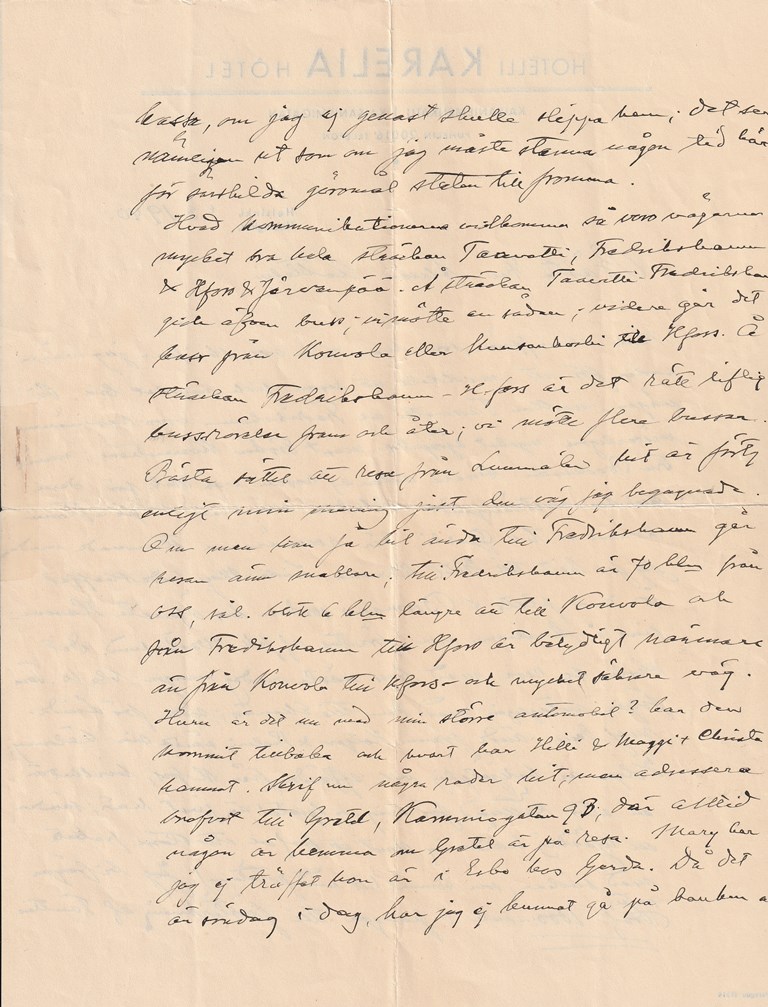 HOTELLI KARELIA HOTEL
kassa, om jag ej genast skulle slippa hem; det ser
nämligen ut som om jag måste stanna någon tid här
för särskilda göromål staten till fromma.
Hvad kommunikationerna vidkommer så voro vägarna
mycket bra hela sträckan Taavetti, Fredrikshamn
& Hfors & Järvenpää. Å sträckan Taavetti-Fredriksham
gick äfven buss; vi mötte en sådan; vidare går det
buss från Kouvola eller till Hfors. Å
sträckan Fredrikshamn - H-fors är det rätt liflig
bussrörelse fram och åter; vi mötte flere bussar.
Bästa sättet att resa från Luumäki hit är
enligt min mening just den väg jag begagnade.
Om man kan få bil ända till Fredrikshamn går
resan ännu snabbare; till Fredrikshamn är 70 klm från
oss, blott 6 klm längre än till Kouvola och
från Fredrikshamn till Hfors är betydligt närmare
än från Kouvola till Hfors - och mycket säkrare väg.
Huru är det nu med min större automobil? har den
kommit tillbaka och hvart har Hilli & Maggi + Christa
hamnat. Skrif nu några rader hit; men adressera
brefvet till Gretel, 9 B, där alltid
någon är hemma om Gretel är på resa. Mary har
jag ej träffat hon är i Esbo hos Gerda. Då det
är söndag i dag, har jag ej kunnat gå på banken